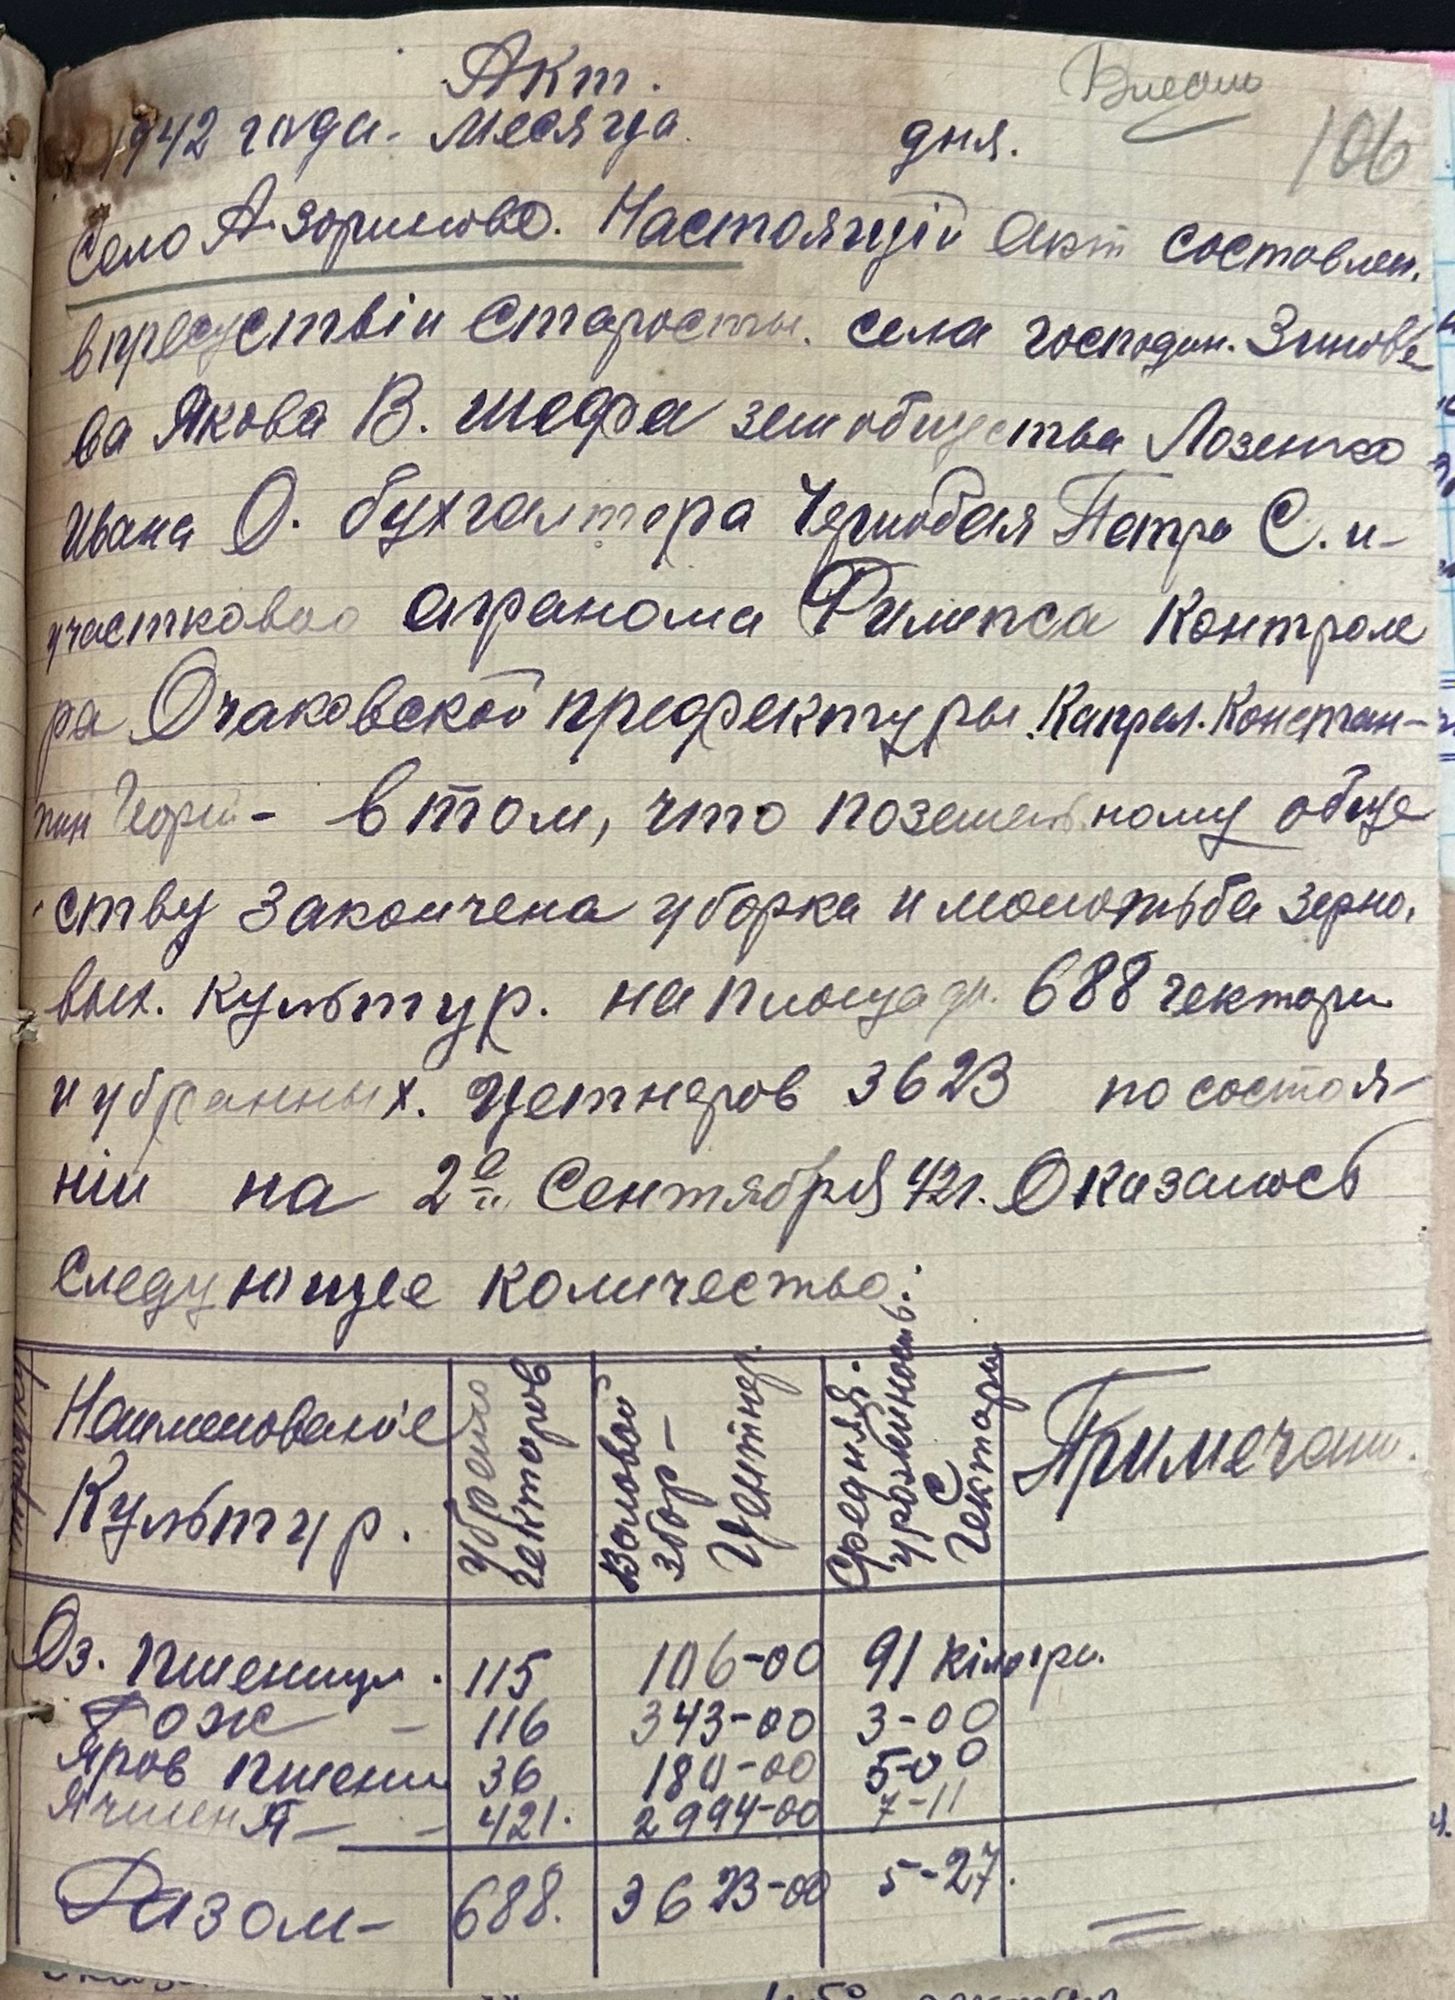 Акт.
106
1942 года. Месяца дня.
Село А. Зориново. Настоящій Акт составлен.
в пресуствіи Старосты. села господин. Зиновье
ва Якова В. шефа земобщества Лозенко
Ивана О. бухгалтера Чернобая Петра С. и-
участковао агранома Филипса Контроле
ра Очаковской префектуры Капрал. Констан-
тин Геори- в том, что поземельному обще
ству закончена уборка и молотьба зерно.
вых. культур. на площади. 688 гектари
и убранных. цетнеров 3623 по состоя-
ніи на 2е Сентября 42г. Оказалось
следующее количество:
Наименованіе Культур.
Убрано гектаров
Валовой збор- Центнер.
Средняя. урожайность с Гектари
Примечани.
Оз. пшеници. 115 106-00 91 кілогрм.
Рож - 116 343-00 3-00
Яров пшени 36 180-00 5-00
Ячменя- - 421. 2994-00 7-11
Разом- 688. 3623-00 5-27.